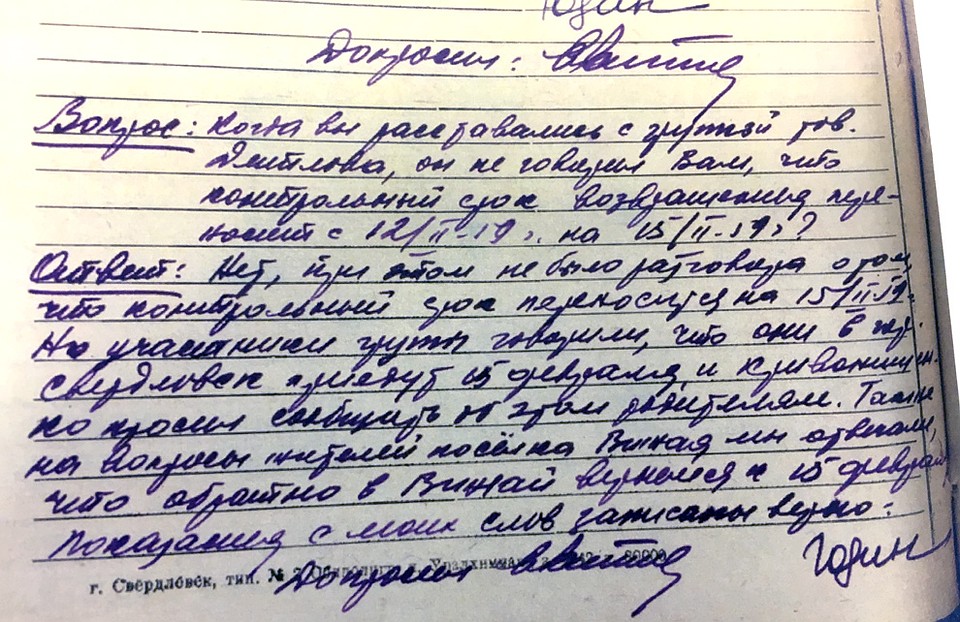 Юдин
Допросил:
Вопрос: Когда вы расставались с группой тов.
Дятлова, он не говорил Вам, что
контрольный срок возвращения пере-
носит с 12/II-59 г. на 15/II-59 г?
Ответ: Нет, при этом не было разговора о том,
что контрольный срок переносится на 15/II 59.
Но участники группы говорили, что они в гор.
Свердловск приедут 15 февраля, и Кривонищен-
ко просил сообщить об этом родителям. Также
на вопросы жителей посёлка Вижая мы отвечали,
что обратно в Вижай вернёмся к 15 февраля
Показания с моих слов записаны верно.
Допросил Юдин
г. Свердловск, тип. №